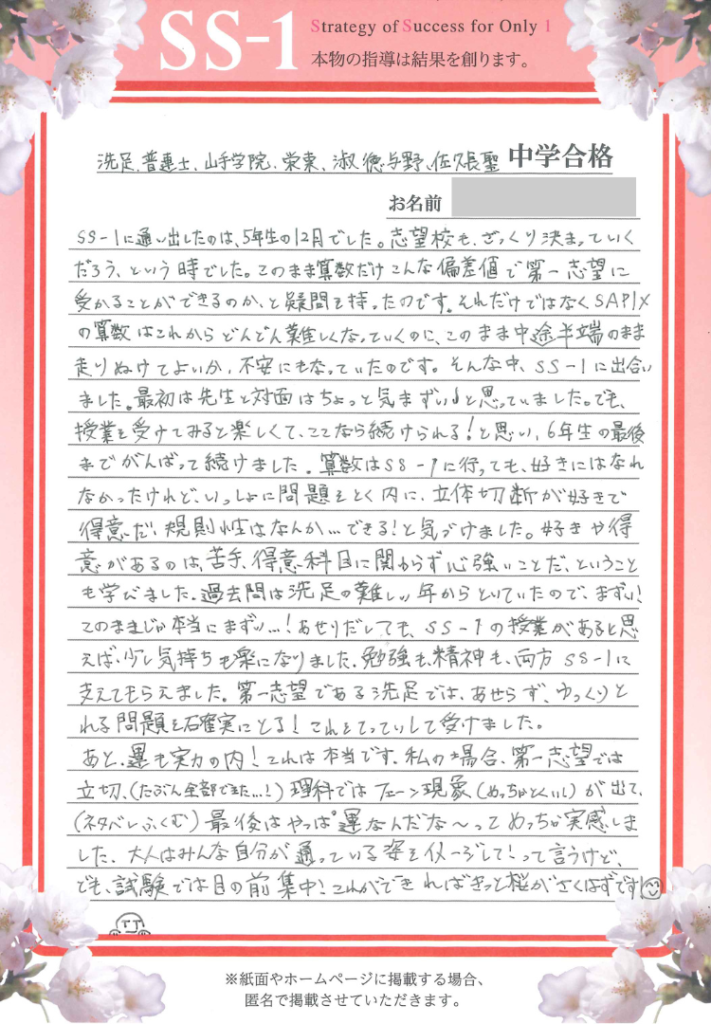 SS-1
Strategy of Success for Only 1
本物の指導は結果を創ります。
洗足、普連土、山手学院、栄東、淑徳与野、佐久長聖 中学合格
お名前
SS-1に通い出したのは、5年生の12月でした。志望校も、ざっくり決まっていく
だろう、という時でした。このまま算数だけこんな偏差値で第一志望に
受かることができるのか、と疑問を持ったのです。それだけではなくSAPIX
の算数はこれからどんどん難しくなっていくのに、このまま中途半端のまま
走りぬけてよいか、不安にもなっていたのです。そんな中、SS-1に出合い
ました。最初は先生と対面はちょっと気まずい♩と思っていました。でも、
授業を受けてみると楽しくて、ここなら続けられる！と思い、6年生の最後
までがんばって続けました。算数はSS-1に行っても、好きにはなれ
なかったけれど、いっしょに問題をとく内に、立体切断が好きで
得意だ、規則性はなんか…できる！と気づけました。好きや得
意があるのは、苦手、得意科目に関わらず心強いことだ、ということ
も学びました。過去問は洗足の難しい年からといていたので、まずい！
このままじゃ本当にまずい…！あせりだしても、SS-1の授業があると思
えば、少し気持ちも楽になりました。勉強も、精神も、両方SS-1に
支えてもらえました。第一志望である洗足では、あせらず、ゆっくりと
れる問題を確実にとる！これをてっていして受けました。
あと、運も実力の内！これは本当です。私の場合、第一志望では
立切、(たぶん全部できた…！)理科ではフェーン現象(めっちゃとくい)が出て、
(ネタバレふくむ)最後はやっぱ運なんだな〜ってめっちゃ実感しま
した。大人はみんな自分が通っている姿をイメージして！って言うけど、
でも、試験では目の前集中！これができればきっと桜がさくはずです！
※紙面やホームページに掲載する場合、
匿名で掲載させていただきます。